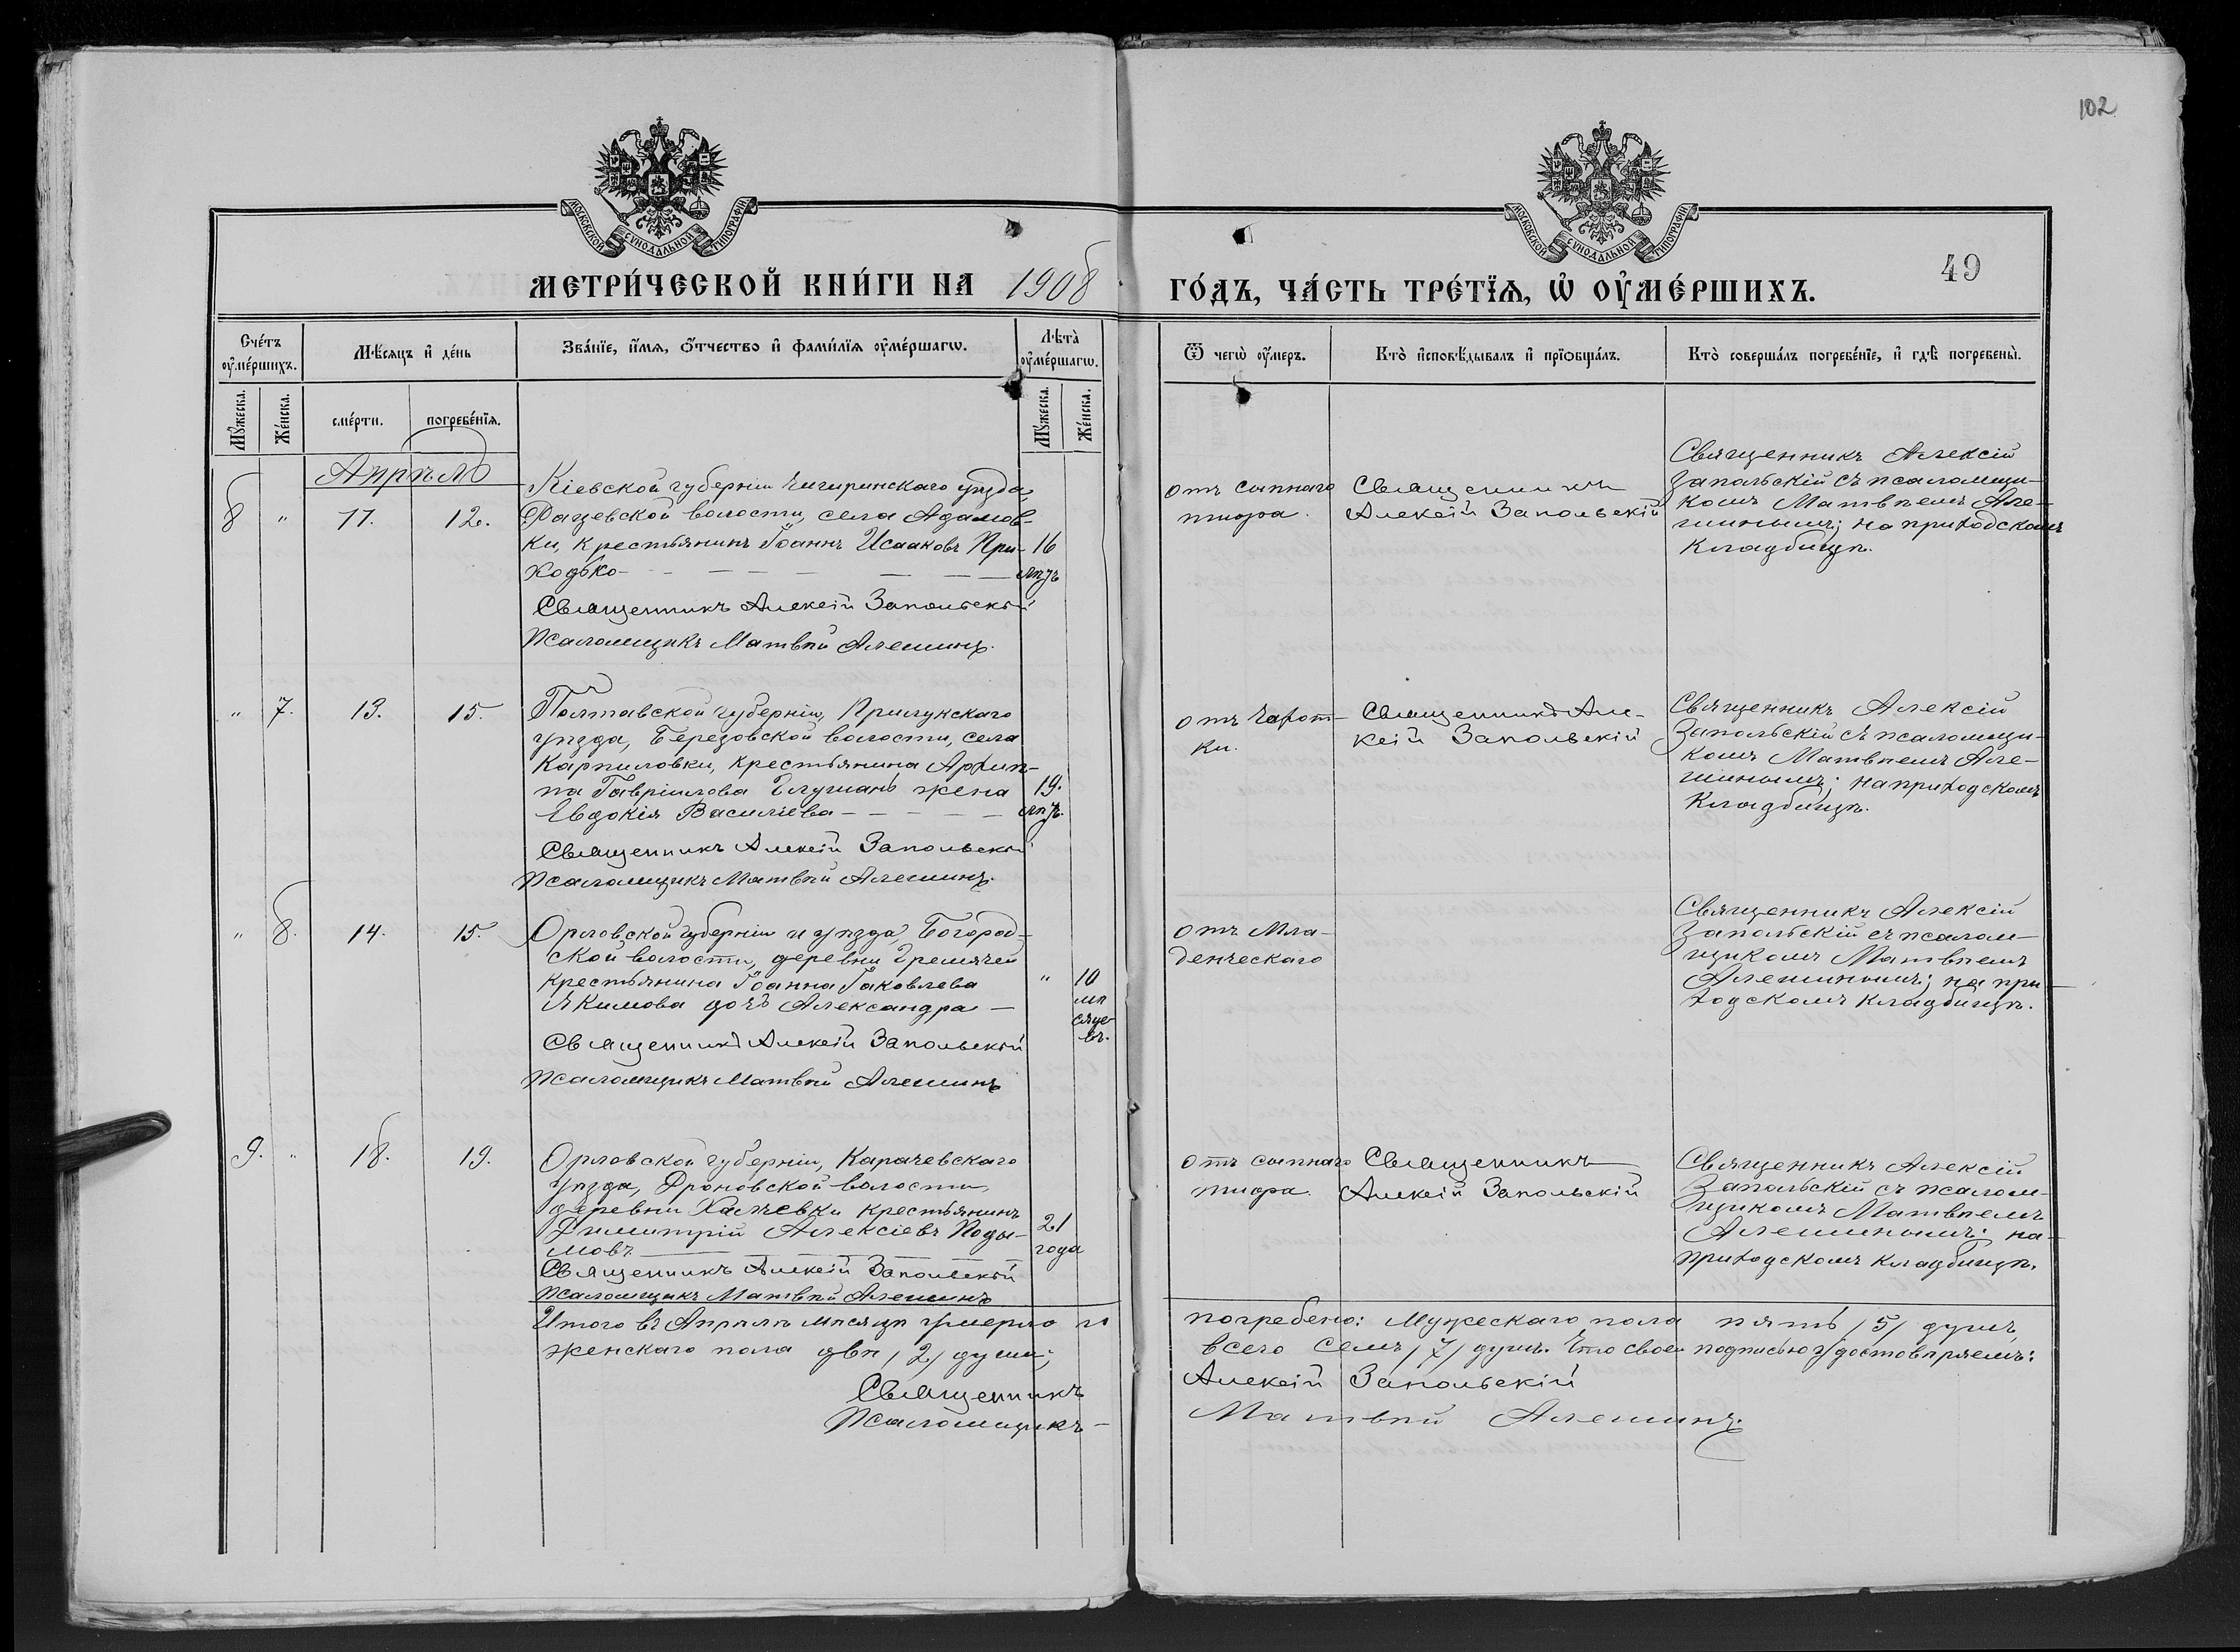 102
МОСКОВСКОЙ СѴНОДАЛЬНОЙ ТИПОГРАФІИ
МОСКОВСКОЙ СѴНОДАЛЬНОЙ ТИПОГРАФІИ
49
МЕТРИ́ЧЕСКОЙ КНИ́ГИ НА 1908
ГО́ДЪ, ЧА́СТЬ ТРЕ́ТЇѦ, Ѡ҆ ОУ҆МЕ́РШИХЪ.
Сче́тъ оу҆ме́ршихъ.
Мѣ́сяцъ и҆ де́нь
Зва́нїе, и҆́мѧ, ѻ҆́тчество и҆ фами́лїѧ оу҆ме́ршагѡ.
Лѣта̀ оу҆ме́ршагѡ.
Ѿ чегѡ̀ оу҆́меръ.
Кто̀ и҆сповѣ́дывалъ и҆ прїѻбща́лъ.
Кто̀ соверша́лъ погребе́нїе, и҆ гдѣ̀ погребены̀.
Мꙋ́жеска.
Же́нска.
сме́рти.
погребе́нїѧ.
Мꙋ́жеска.
Же́нска.
Апрѣль
8 " 11. 12.
Кіевской губерніи Чигиринскаго уѣзда,
волости, села Адамов-
ки, крестьянинъ Іоаннъ Исааковъ При-
ходько
16
лѣтъ
Священникъ Алексій Запольскій
Псаломщикъ Матвѣй Алешинъ.
отъ сыпного
тифа.
Священникъ
Алексій Запольскій
Священникъ Алексій
Запольскій съ псаломщи-
комъ Матвѣемъ Але-
шинымъ; на приходскомъ
кладбищѣ.
" 7. 13. 15.
Полтавской губерніи, Прилукскаго
уѣзда, Березовской волости, села
Карпиловки, крестьянина Архип-
па Гавріилова жена
Евдокія Василіева
19.
лѣтъ.
Священникъ Алексій Запольскій
Псаломщикъ Матвѣй Алешинъ.
отъ чахот-
ки.
Священникъ Але-
ксій Запольскій
Священникъ Алексій
Запольскій съ псаломщи-
комъ Матвѣемъ Але-
шинымъ; на приходскомъ
кладбищѣ.
" 8. 14. 15.
Орловской губерніи и уѣзда, Богород-
ской волости, деревни Гремячей
крестьянина Іоанна Іаковлева
Якимова дочь Александра
" 10
мѣ
сяце-
въ.
Священникъ Алексій Запольскій
Псаломщикъ Матвѣй Алешинъ
отъ Мла-
денческаго
Священникъ Алексій
Запольскій съ псалом-
щикомъ Матвѣемъ
Алешинымъ; на при-
ходскомъ кладбищѣ.
9. " 18. 19.
Орловской губерніи, Карачевскаго
уѣзда, Дроновской волости,
деревни крестьянинъ
Димитрій Алексіевъ Поды-
мовъ
21
года
Священникъ Алексій Запольскій
Псаломщикъ Матвѣй Алешинъ
отъ сыпнаго
тифа.
Священникъ
Алексій Запольскій
Священникъ Алексій
Запольскій съ псалом-
щикомъ Матвѣемъ
Алешинымъ; на-
приходскомъ кладбищѣ.
Итого въ Апрѣлѣ мѣсяцѣ умерло и
погребено: Мужескаго пола пять /5/ душъ,
женскаго пола двѣ /2/ души;
всего семь /7/ душъ. Что своей подписью удостовѣряемъ:
Священникъ
Алексій Запольскій
Псаломщикъ-
Матвѣй Алешинъ.